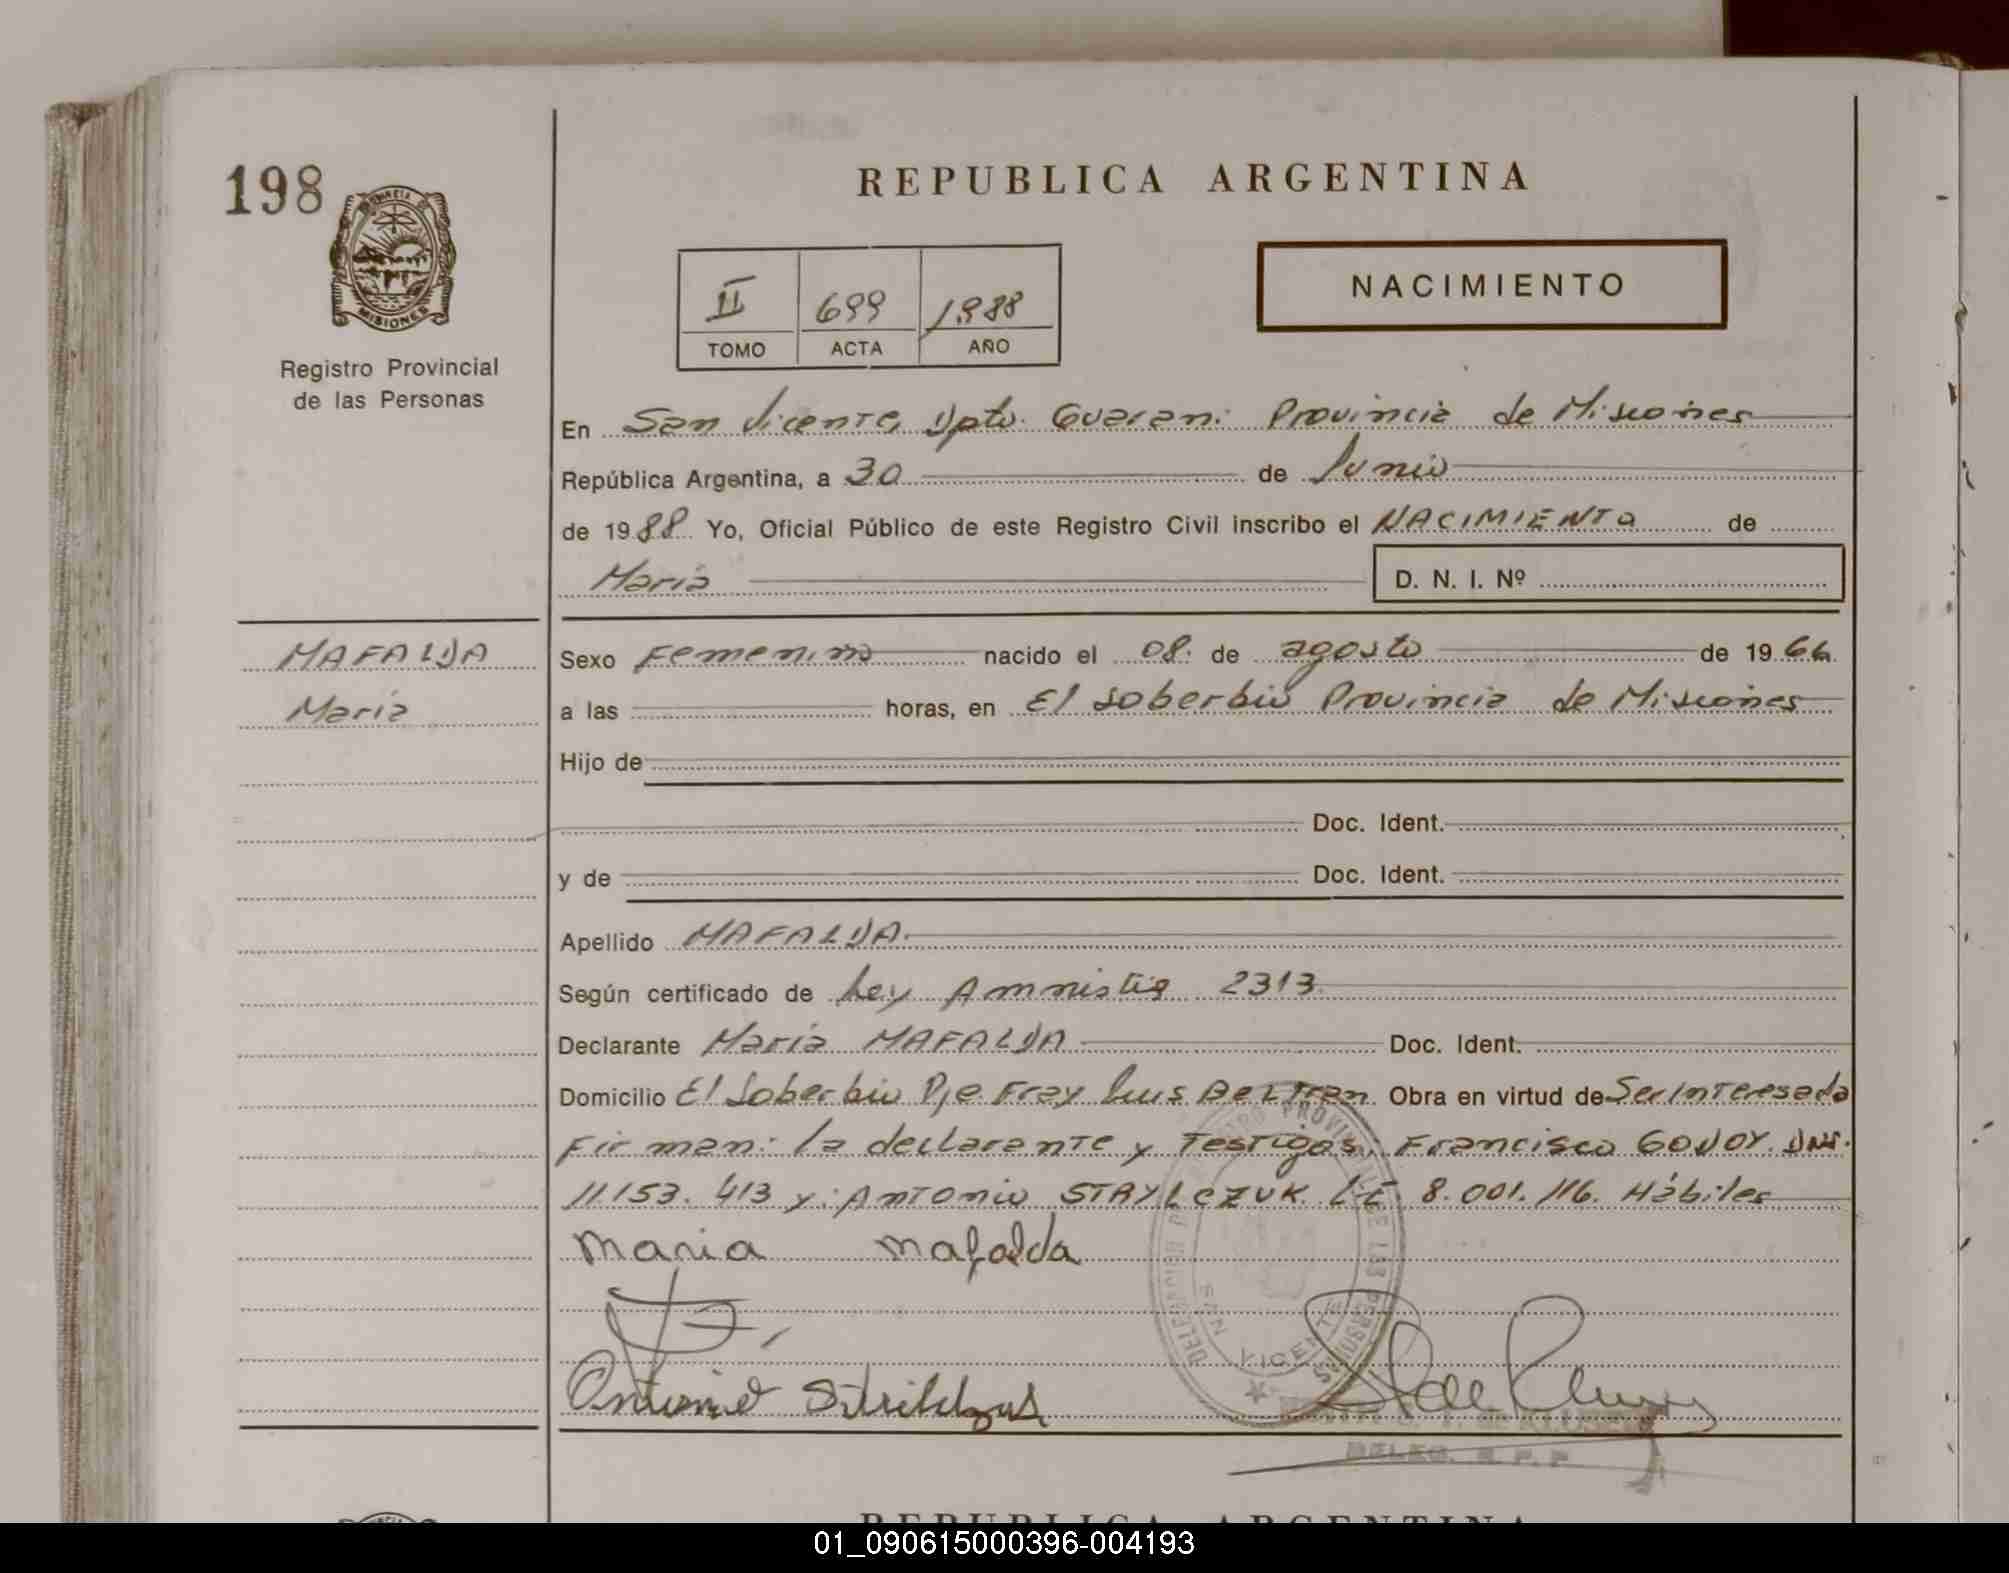 198
PROVINCIA DE
MISIONES
Registro Provincial
de las Personas
REPUBLICA ARGENTINA
II 699 1988
TOMO ACTA AÑO
NACIMIENTO
En San Vicente, Dpto. Guaraní Provincia de Misiones
República Argentina, a 30 de Junio
de 1988 Yo, Oficial Público de este Registro Civil inscribo el NACIMIENTO de
María D. N. I. Nº
MAFALDA
María
Sexo Femenino nacido el 08 de agosto de 1966
a las horas, en El Soberbio Provincia de Misiones
Hijo de
Doc. Ident.
y de Doc. Ident.
Apellido MAFALDA
Según certificado de Ley Amnistia 2313
Declarante María MAFALDA Doc. Ident.
Domicilio El Soberbio Pje Fray Luis Beltran Obra en virtud de Ser Interesada
Firman: la declarante y Testigos; Francisco GODOY. DNI.
11.153.413 y: Antonio STRYLCZUK LE 8.001.116. Hábiles
Maria Mafalda
Antonio
DELEGACION REGISTRO PROVINCIAL DE LAS PERSONAS
SAN VICENTE
DELEG. R. P. P.
REPUBLICA ARGENTINA
01_090615000396-004193